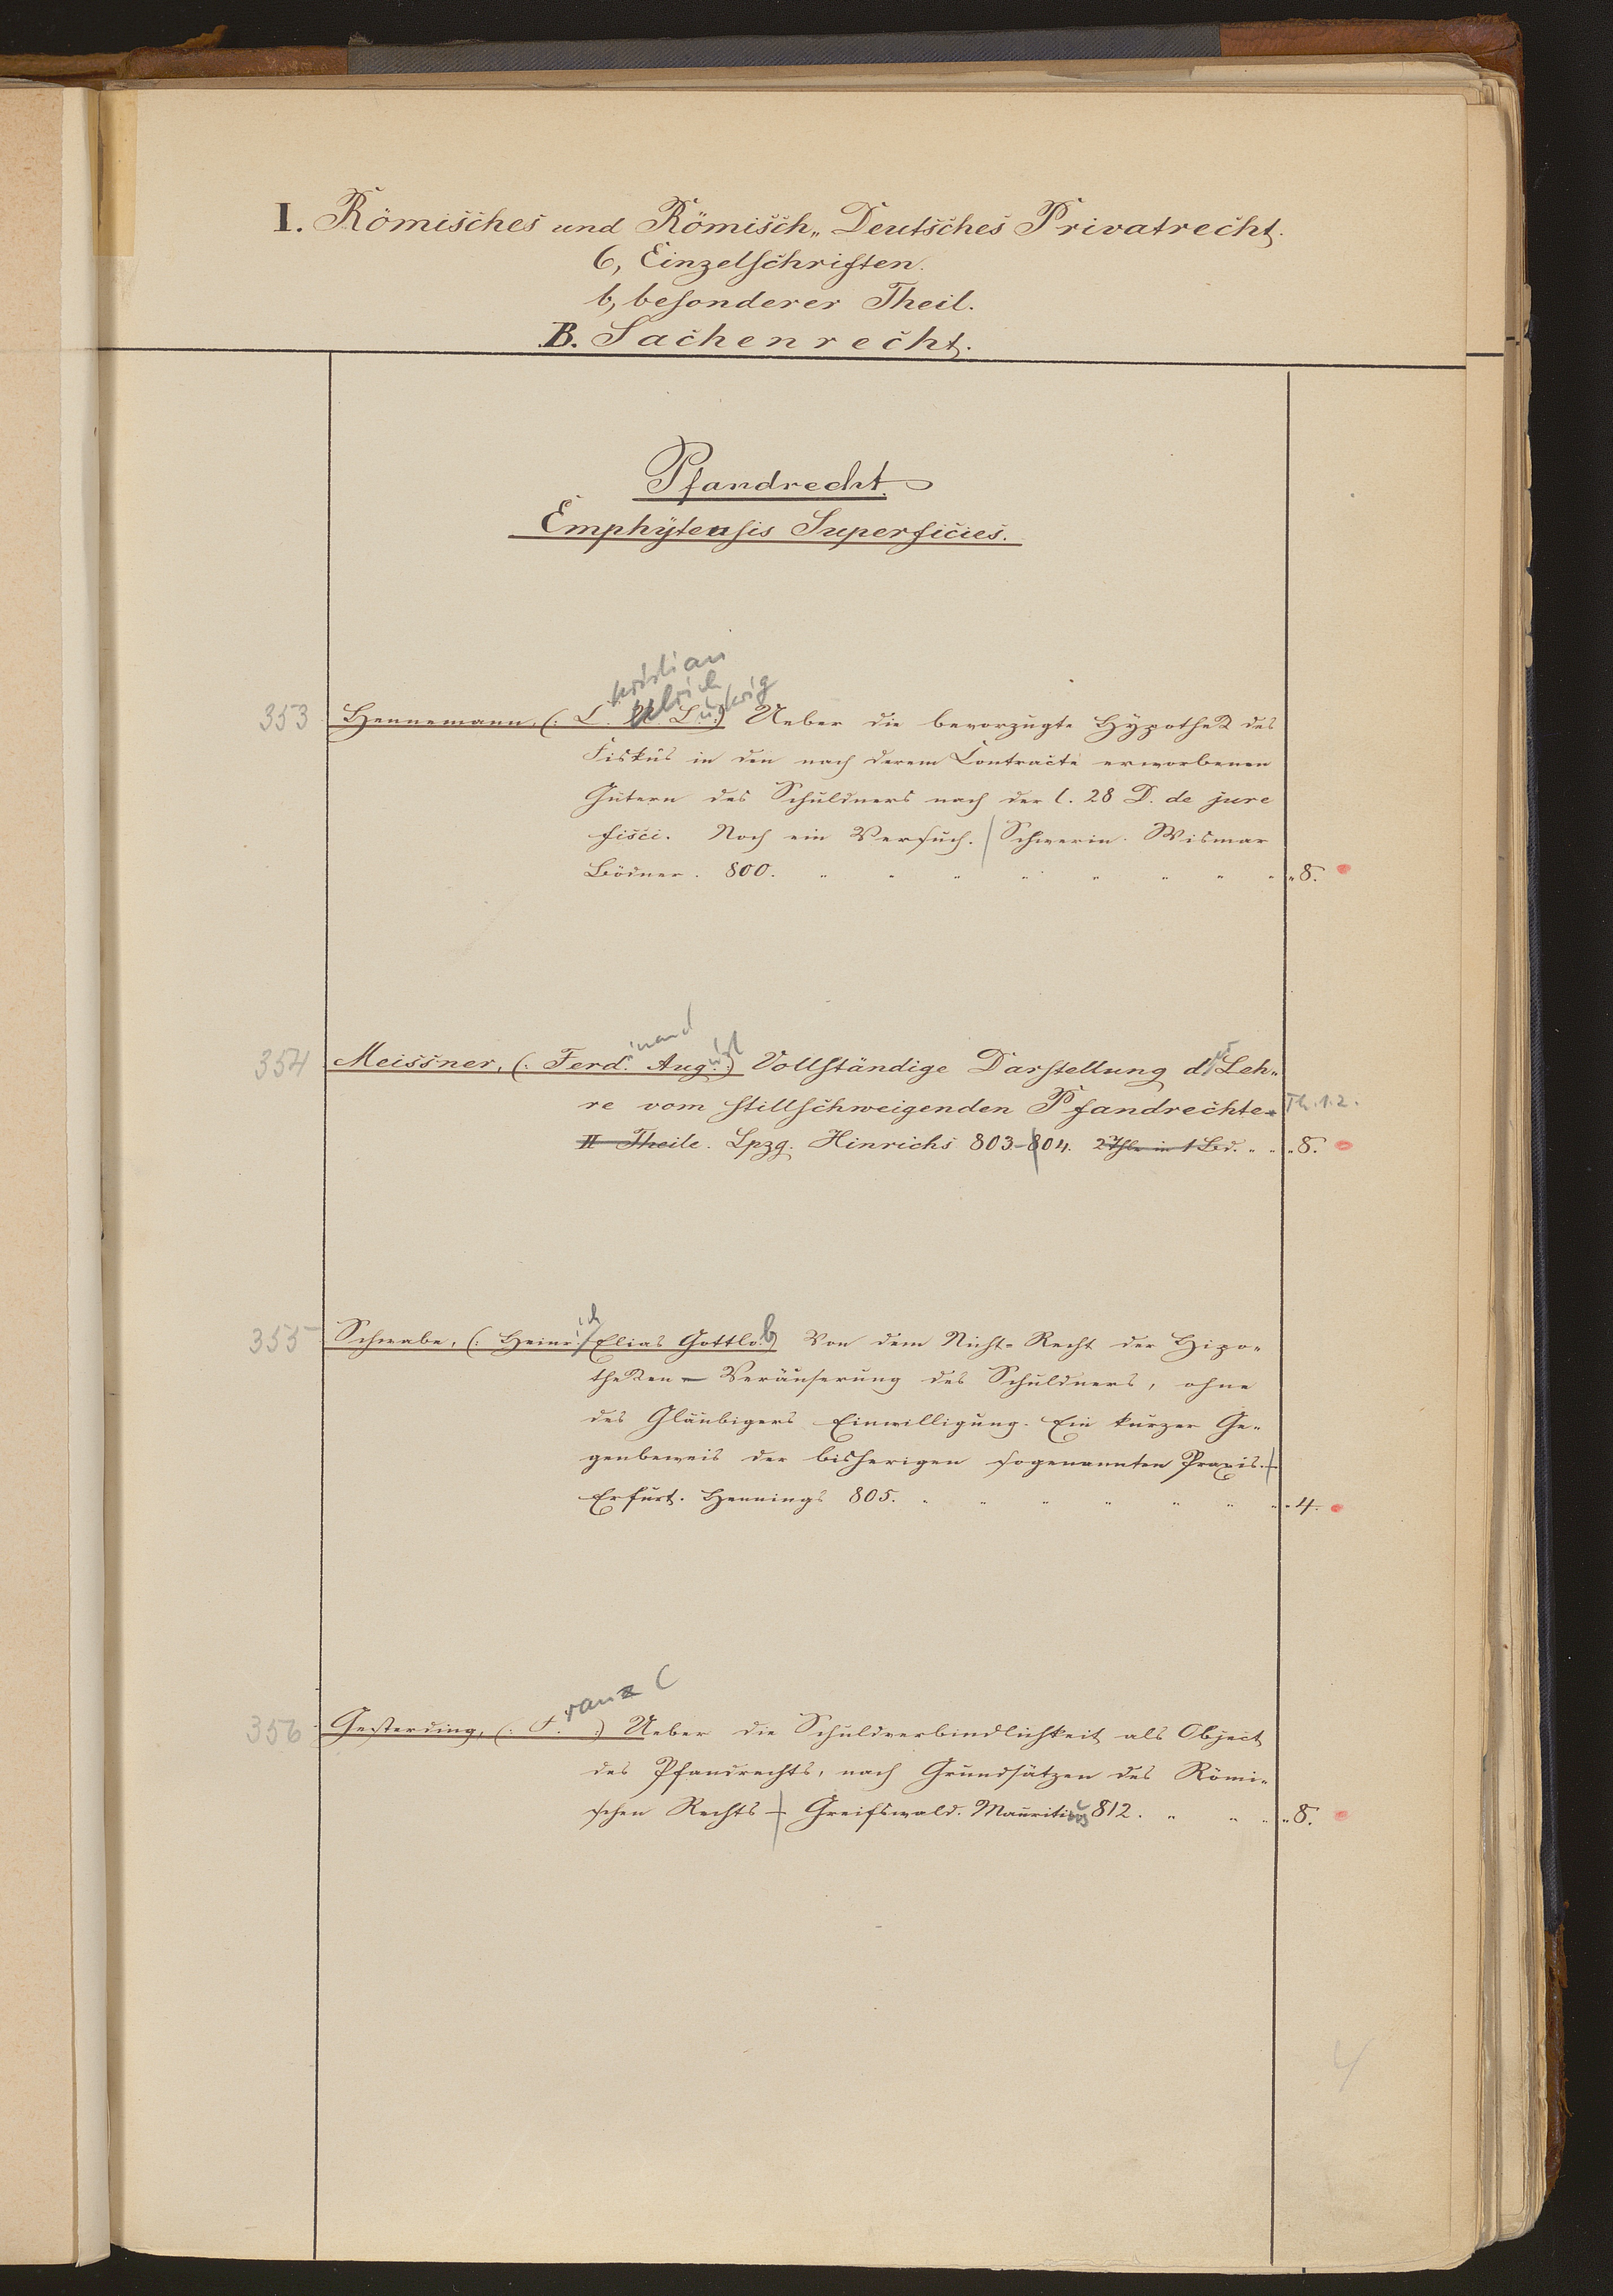 I. Römisches und Römisch„ Deutsches Privatrecht.
6, Einzelschriften.
b, besonderer Theil.
B. Sachenrecht.
Pfandrecht.
Emphyteusis Superficies.
hristian
lrich
udwig
353 Hennemann, (: C. U. L. :) Ueber die bevorzugte Hypothek des
Fiskus in den nach derem Contracte erworbenen
Gütern des Schuldners nach der l. 28 D. de jure
fisci. Noch ein Versuch. / Schwerin. Wismar
Bödner. 800. „ 8.
inand ust
354 Meissner, (: Ferd. Aug. :) Vollständige Darstellung der Leh„
re vom stillschweigenden Pfandrechte. Th. 1.2.
II Theile. Lpzg. Hinrichs 803-804. 2 Thle in 1 Bd. „ 8.
ich
355 Schwabe, (: Heinr. / Elias Gottlob Von dem Nicht- Recht der Hipo-
theken - Veräuserung des Schuldners, ohne
des Gläubigers Einwilligung. Ein kurzer Ge-
genbeweis der bisherigen sogenannten Praxis. /
Erfurt. Hennings 805. „ 4.
ranz C
356 Gesterding, (: F. :) Ueber die Schuldverbindlichkeit als Object
des Pfandrechts, nach Grundsätzen des Römi-
schen Rechts / Greifswald. Mauritius 812. „ 8.
4